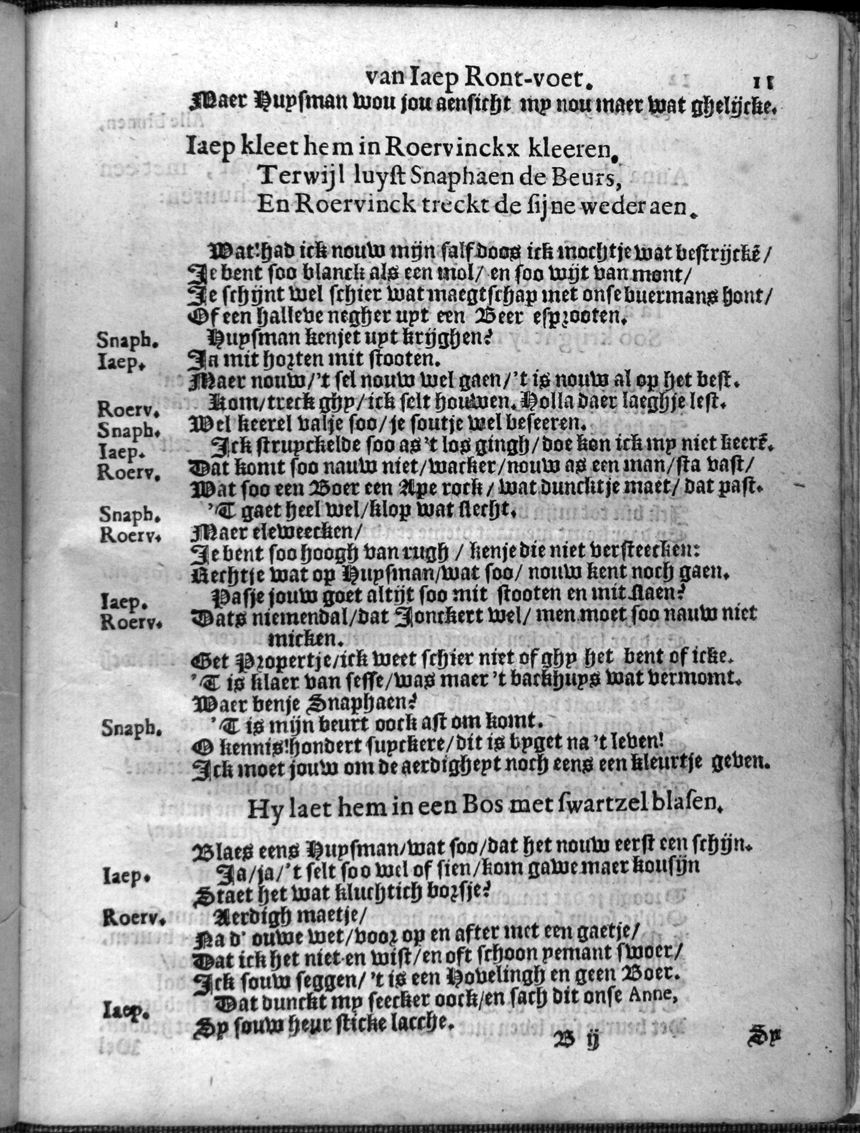 van Iaep Ront-voet. 11
Maer Huysman wou jou aensicht my nou maer wat ghelijcke.
Iaep kleet hem in Roervinckx kleeren,
Terwijl luyst Snaphaen de Beurs,
En Roervinck treckt de sijne weder aen.
Wat! had ick nouw mijn salfdoos ick mochtje wat bestrijckē/
Je bent soo blanck als een mol/ en soo wijt van mont/
Je schijnt wel schier wat maegtschap met onse buermans hont/
Of een halleve negher uyt een Beer esprooten.
Snaph. Huysman kenjet uyt krijghen?
Iaep. Ja mit horten mit stooten.
Maer nouw/'t sel nouw wel gaen/'t is nouw al op het best.
Roerv. Kom/treck ghy/ick selt houwen. Holla daer laeghje lest.
Snaph. Wel keerel valje soo/je soutje wel beseeren.
Iaep. Ick struyckelde soo as't los gingh/doe kon ick my niet keerē.
Roerv. Dat komt soo nauw niet/wacker/nouw as een man/sta vast/
Wat soo een Boer een Ape rock/ wat duncktje maet/ dat past.
Snaph. 'T gaet heel wel/klop wat slecht.
Roerv. Maer eleweecken/
Je bent soo hoogh van rugh / kenje die niet versteecken:
Rechtje wat op Huysman/wat soo/ nouw kent noch gaen.
Iaep. Pasje jouw goet altijt soo mit stooten en mit slaen?
Roerv. Dats niemendal/dat Jonckert wel/ men moet soo nauw niet
micken.
Get Propertje/ick weet schier niet of ghy het bent of icke.
'T is klaer van sesse/was maer 't backhuys wat vermomt.
Waer benje Snaphaen?
Snaph. 'T is mijn beurt oock ast om komt.
O kennis! hondert suyckere/dit is byget na 't leven!
Ick moet jouw om de aerdigheyt noch eens een kleurtje geven.
Hy laet hem in een Bos met swartzel blasen.
Blaes eens Huysman/wat soo/dat het nouw eerst een schijn.
Iaep. Ja/ja/'t selt soo wel of sien/kom gawe maer kousijn
Staet het wat kluchtich borsje?
Roerv. Aerdigh maetje/
Na d' ouwe wet/voor op en after met een gaetje/
Dat ick het niet en wist/en oft schoon yemant swoer/
Ick souw seggen/ 't is een Hovelingh en geen Boer.
Iaep. Dat dunckt my seecker oock/en sach dit onse Anne,
Sy souw heur sticke lacche.
B ij Sy